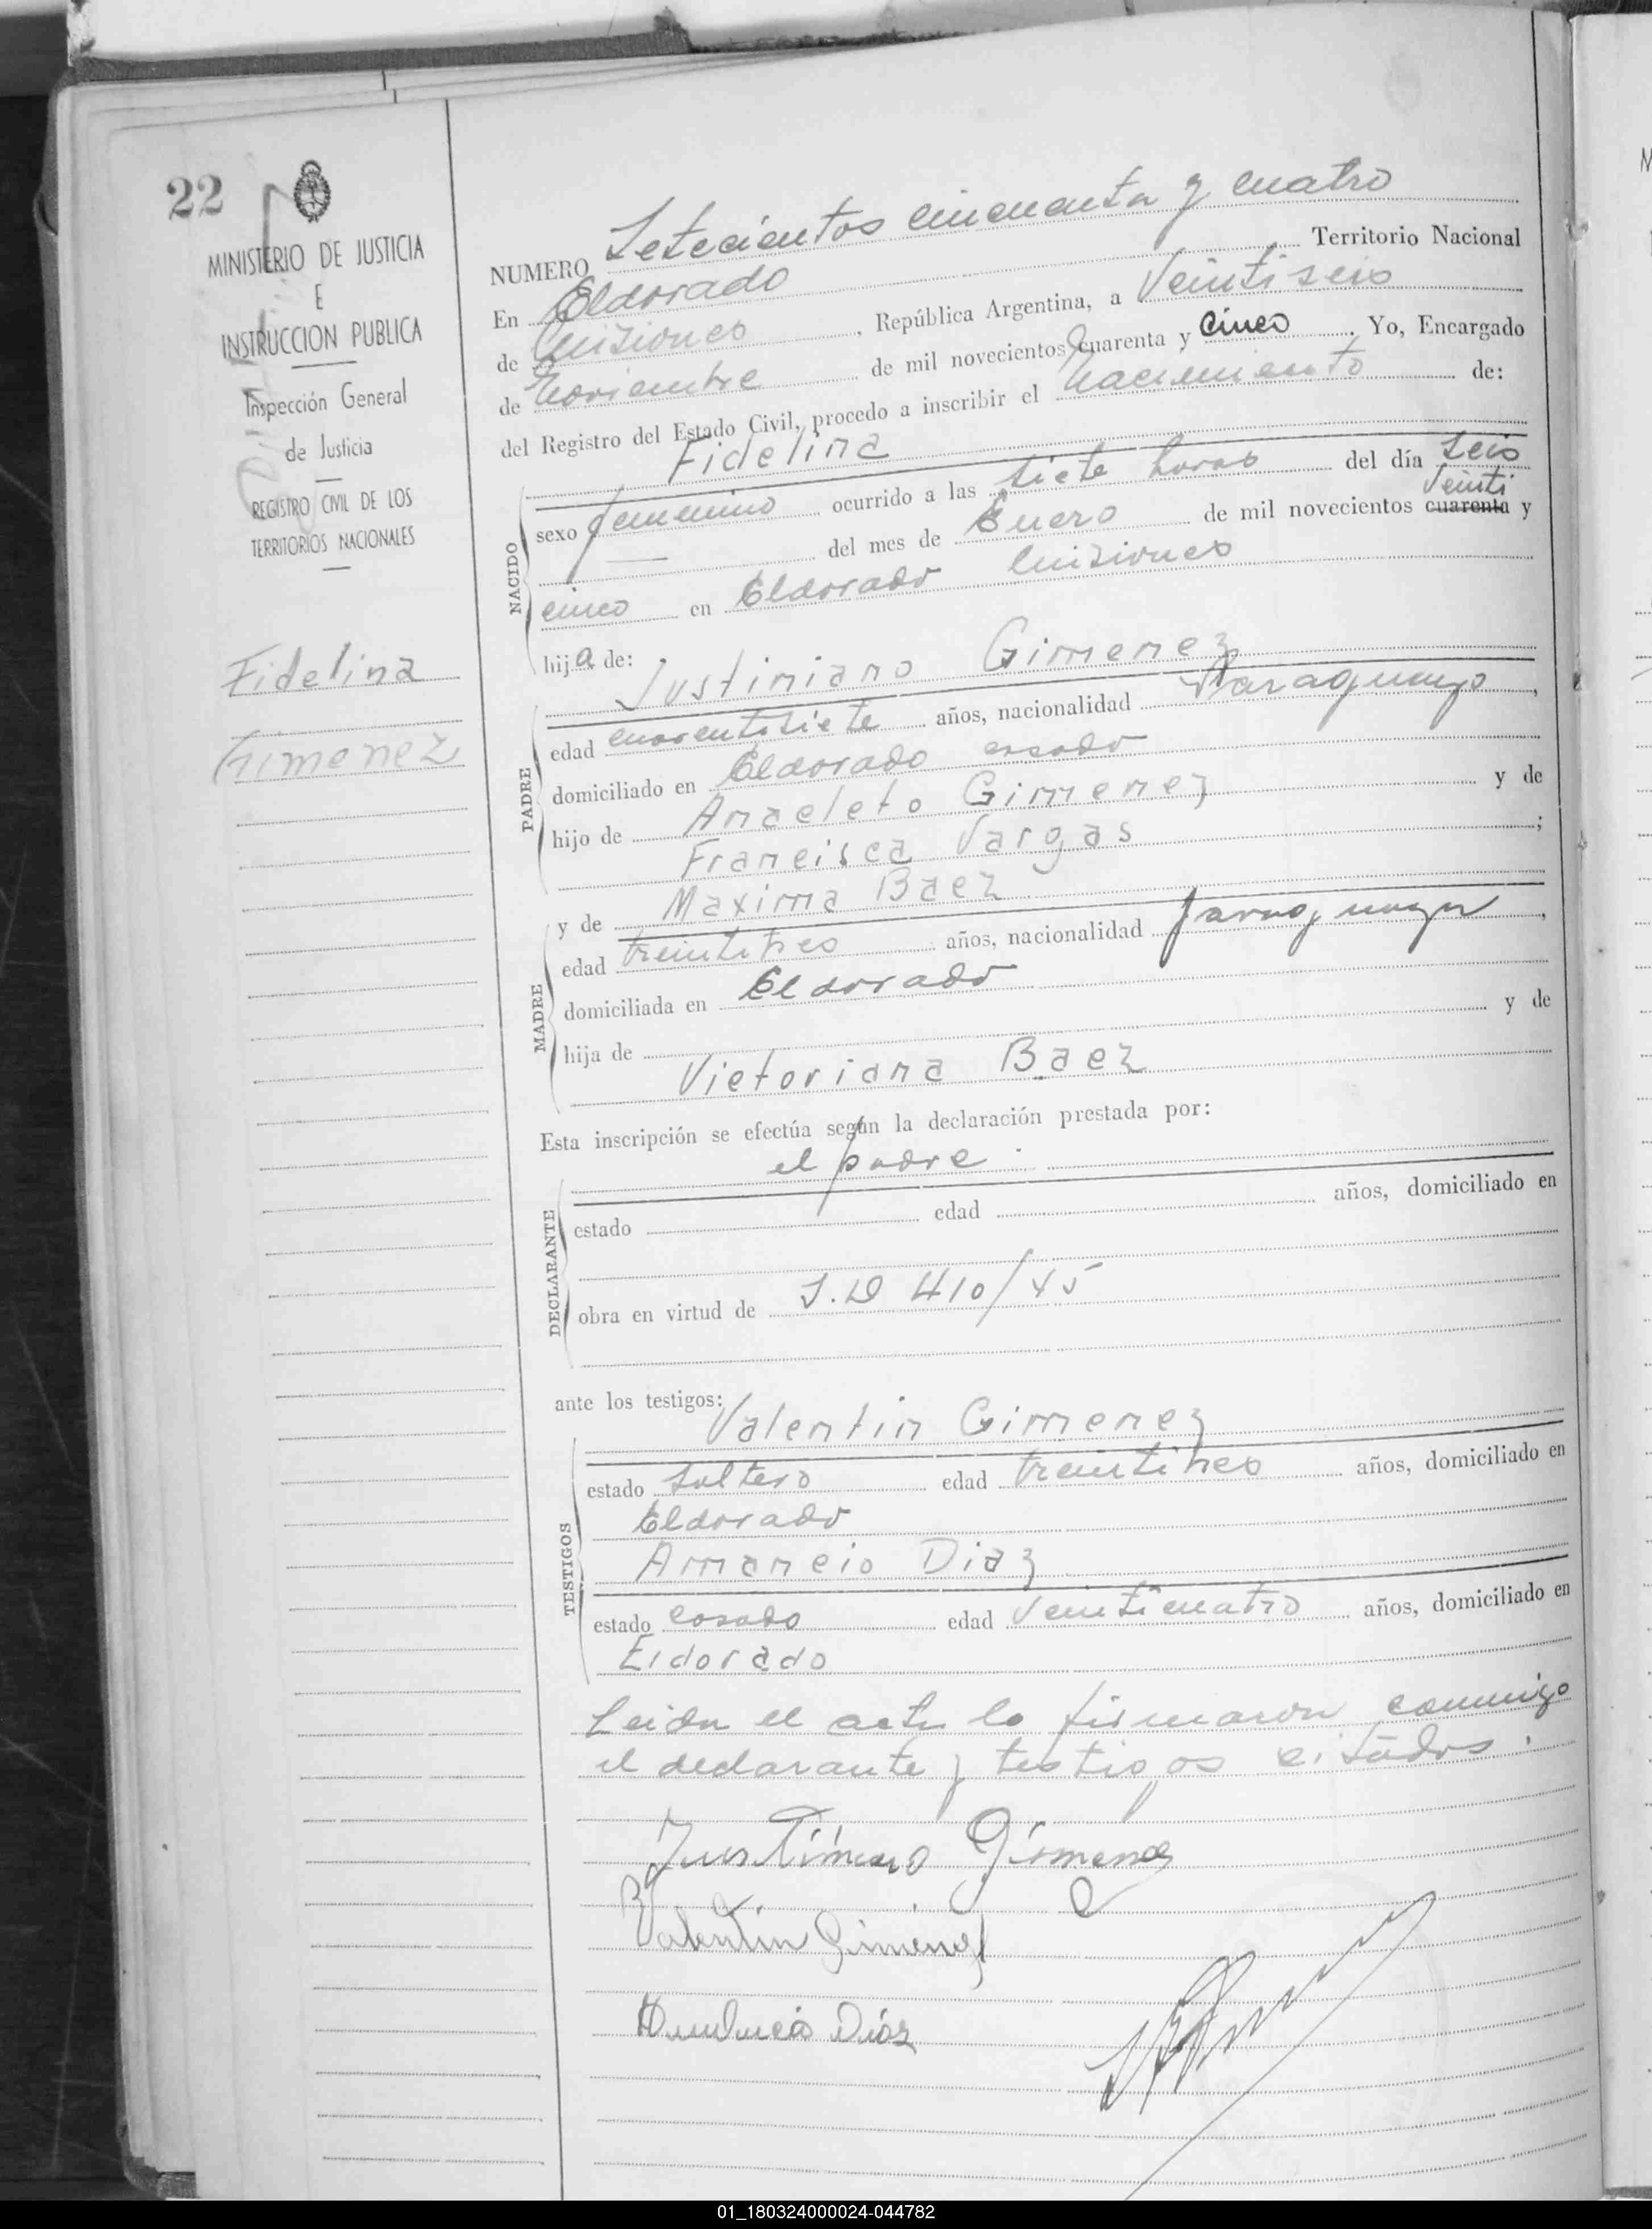 22
MINISTERIO DE JUSTICIA
E
INSTRUCCION PUBLICA
Inspección General
de Justicia
REGISTRO CIVIL DE LOS
TERRITORIOS NACIONALES
Fidelina
Gimenez
NUMERO Setecientos cincuenta y cuatro
En Eldorado Territorio Nacional
de Misiones, República Argentina, a Veintiseis
de Noviembre de mil novecientos cuarenta y Cinco. Yo, Encargado
del Registro del Estado Civil, procedo a inscribir el Nacimiento de:
Fidelina
NACIDO
sexo femenino ocurrido a las siete horas del día seis
Veinti
del mes de Enero de mil novecientos cuarenta y
cinco en Eldorado Misiones
hija de:
Justiniano Gimenez
PADRE
edad cuarentisiete años, nacionalidad Paraguayo,
domiciliado en Eldorado casado
hijo de Anacleto Gimenez y de
Francisca Vargas;
y de Maxima Baez
MADRE
edad treintitres años, nacionalidad paraguaya,
domiciliada en Eldorado
hija de y de
Victoriana Baez
Esta inscripción se efectúa según la declaración prestada por:
el padre
DECLARANTE
estado edad años, domiciliado en
obra en virtud de 410/45
ante los testigos:
Valentin Gimenez
TESTIGOS
estado soltero edad treintitres años, domiciliado en
Eldorado
Amancio Diaz
estado casado edad Veinticuatro años, domiciliado en
Eldorado
Leida el acta la firmaron conmigo
el declarante y testigos citados.
Justiniano Gimenez
Valentin Gimenez
Diaz
01_180324000024-044782